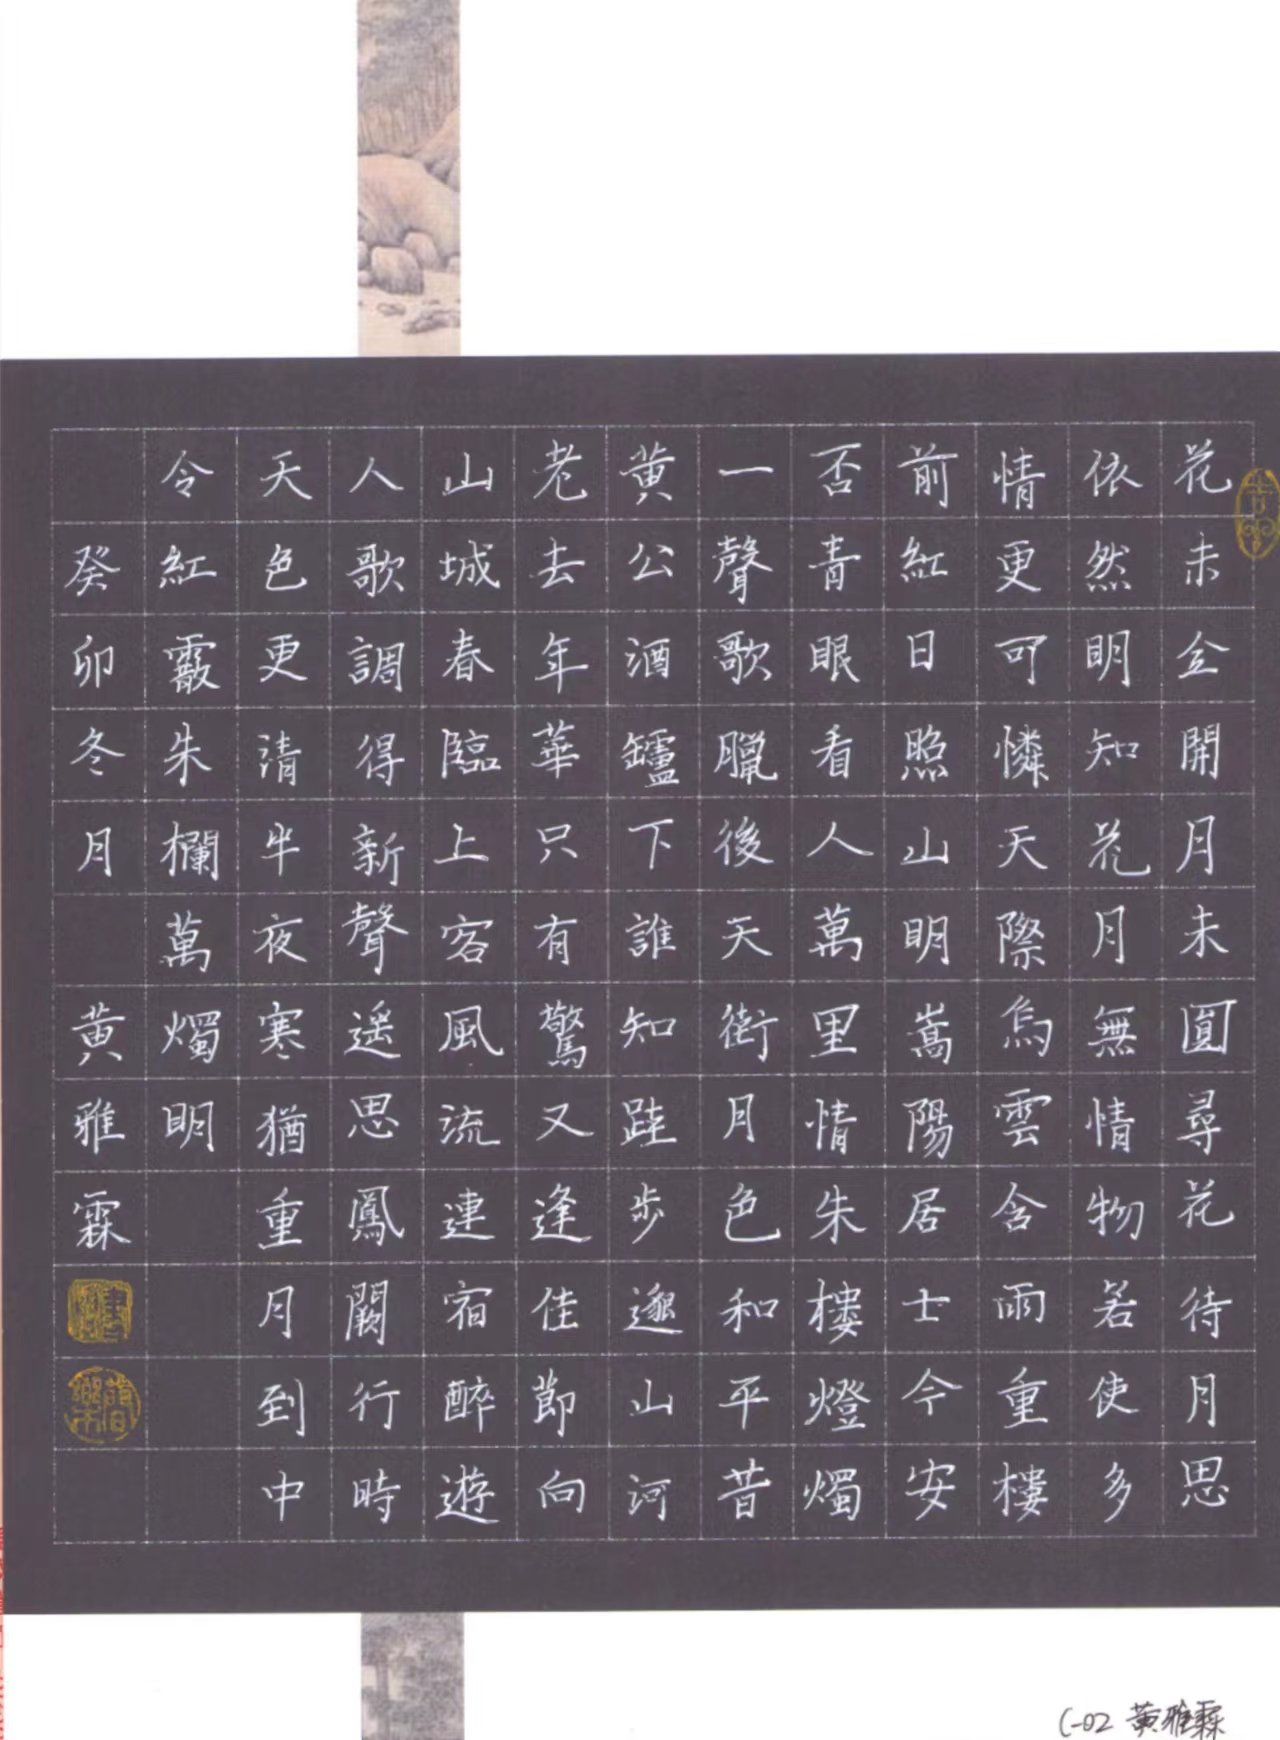 花未全開月未圓尋花待月思
依然明知花月無情物若使多
情更可憐天際烏雲含雨重樓
前紅日照山明嵩陽居士今安
否青眼看人萬里情朱樓燈燭
一聲歌臘後天街月色和平昔
黃公酒罏下誰知跬步邈山河
老去年華只有驚又逢佳節向
山城春臨上客風流連宿醉遊
人歌調得新聲遥思鳳闕行時
天色更清半夜寒猶重月到中
令紅霰朱欄萬燭明
癸卯冬月 黃雅霖
C-02 黃雅霖